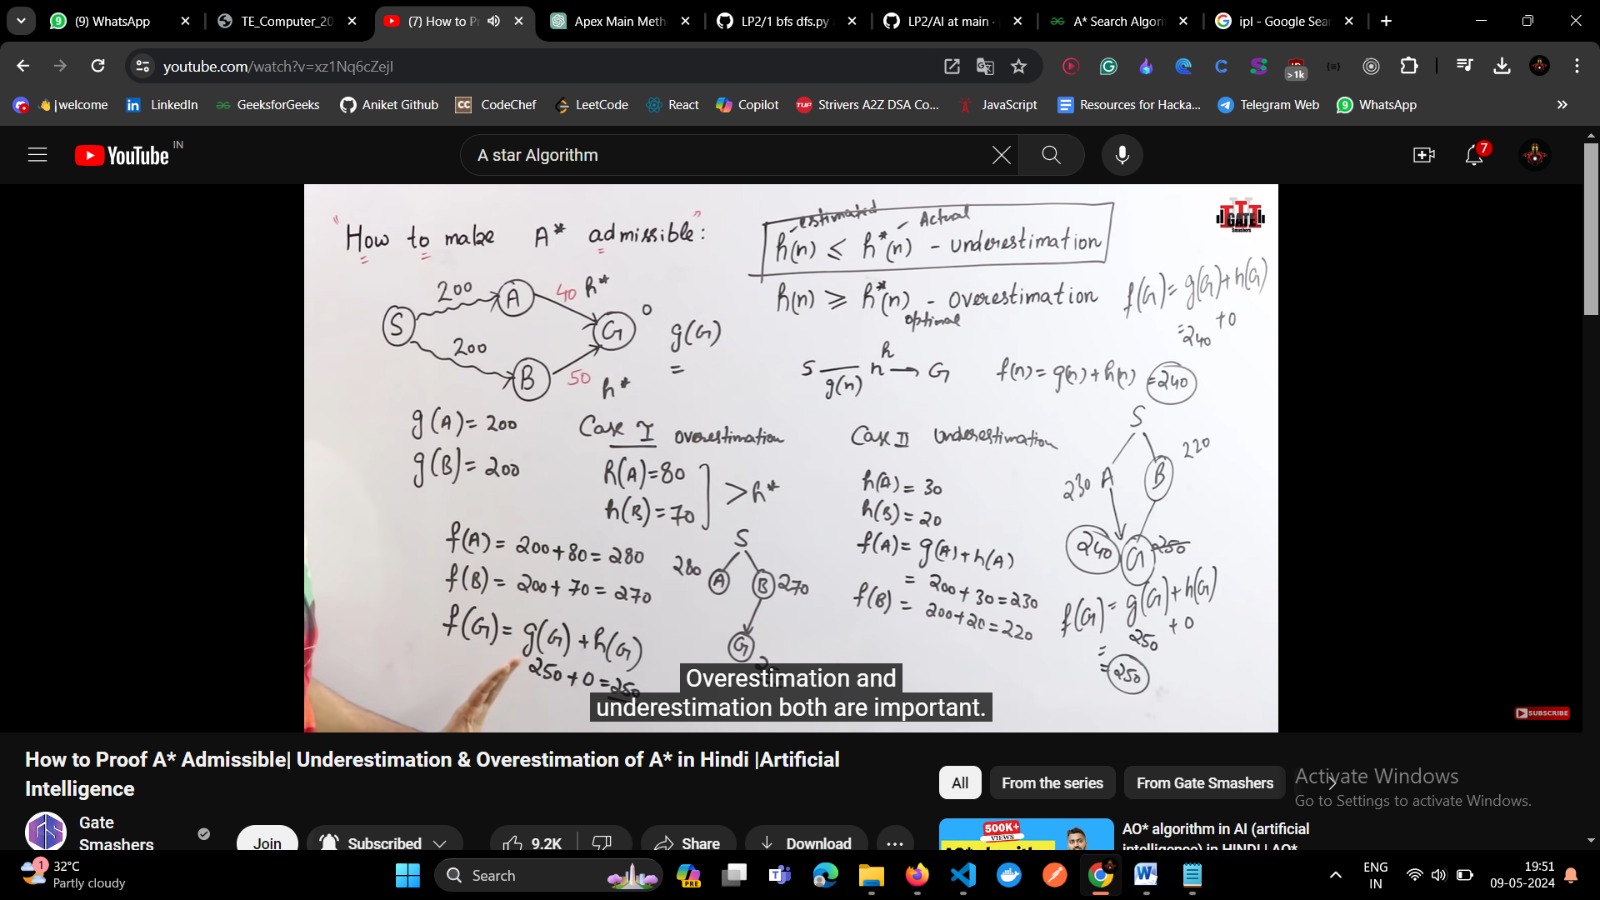 (9) WhatsApp
TE_Computer_20
(7) How to P
Apex Main Meth
LP2/1 bfs dfs.py
LP2/AI at main ·
A* Search Algori
ipl - Google Sea
youtube.com/watch?v=xz1Nq6cZejI
>1k
|welcome
LinkedIn
GeeksforGeeks
Aniket Github
CodeChef
LeetCode
React
Copilot
Strivers A2Z DSA Co...
JavaScript
Resources for Hacka...
Telegram Web
WhatsApp
YouTube IN
A star Algorithm
7
"How to make A* admissible:"
estimated
Actual
h(n) ≤ h*(n) - underestimation
h(n) ≥ h*(n) - Overestimation
optimal
GATE
Smashers
f(G) = g(G) + h(G)
= 240 + 0
S 200 A 40 h* G 0
200 B 50 h*
g(G)
=
S g(n) n h G f(n) = g(n) + h(n) = 240
g(A) = 200
g(B) = 200
Case I overestimation
h(A) = 80
h(B) = 70
> h*
f(A) = 200 + 80 = 280
f(B) = 200 + 70 = 270
f(G) = g(G) + h(G)
250 + 0 = 250
S
280 A B 270
G
Case II underestimation
h(A) = 30
h(B) = 20
f(A) = g(A) + h(A)
= 200 + 30 = 230
f(B) = 200 + 20 = 220
S
230 A B 220
240 G 250
f(G) = g(G) + h(G)
= 250 + 0
= 250
Overestimation and
underestimation both are important.
SUBSCRIBE
How to Proof A* Admissible| Underestimation & Overestimation of A* in Hindi |Artificial
Intelligence
Gate
Smashers
Join
Subscribed
9.2K
Share
Download
All
From the series
From Gate Smashers
Activate Windows
Go to Settings to activate Windows.
500K+
VIEWS
AO* algorithm in AI (artificial
intelligence) in HINDI | AO*
1
32°C
Partly cloudy
Search
PRE
ENG
IN
19:51
09-05-2024